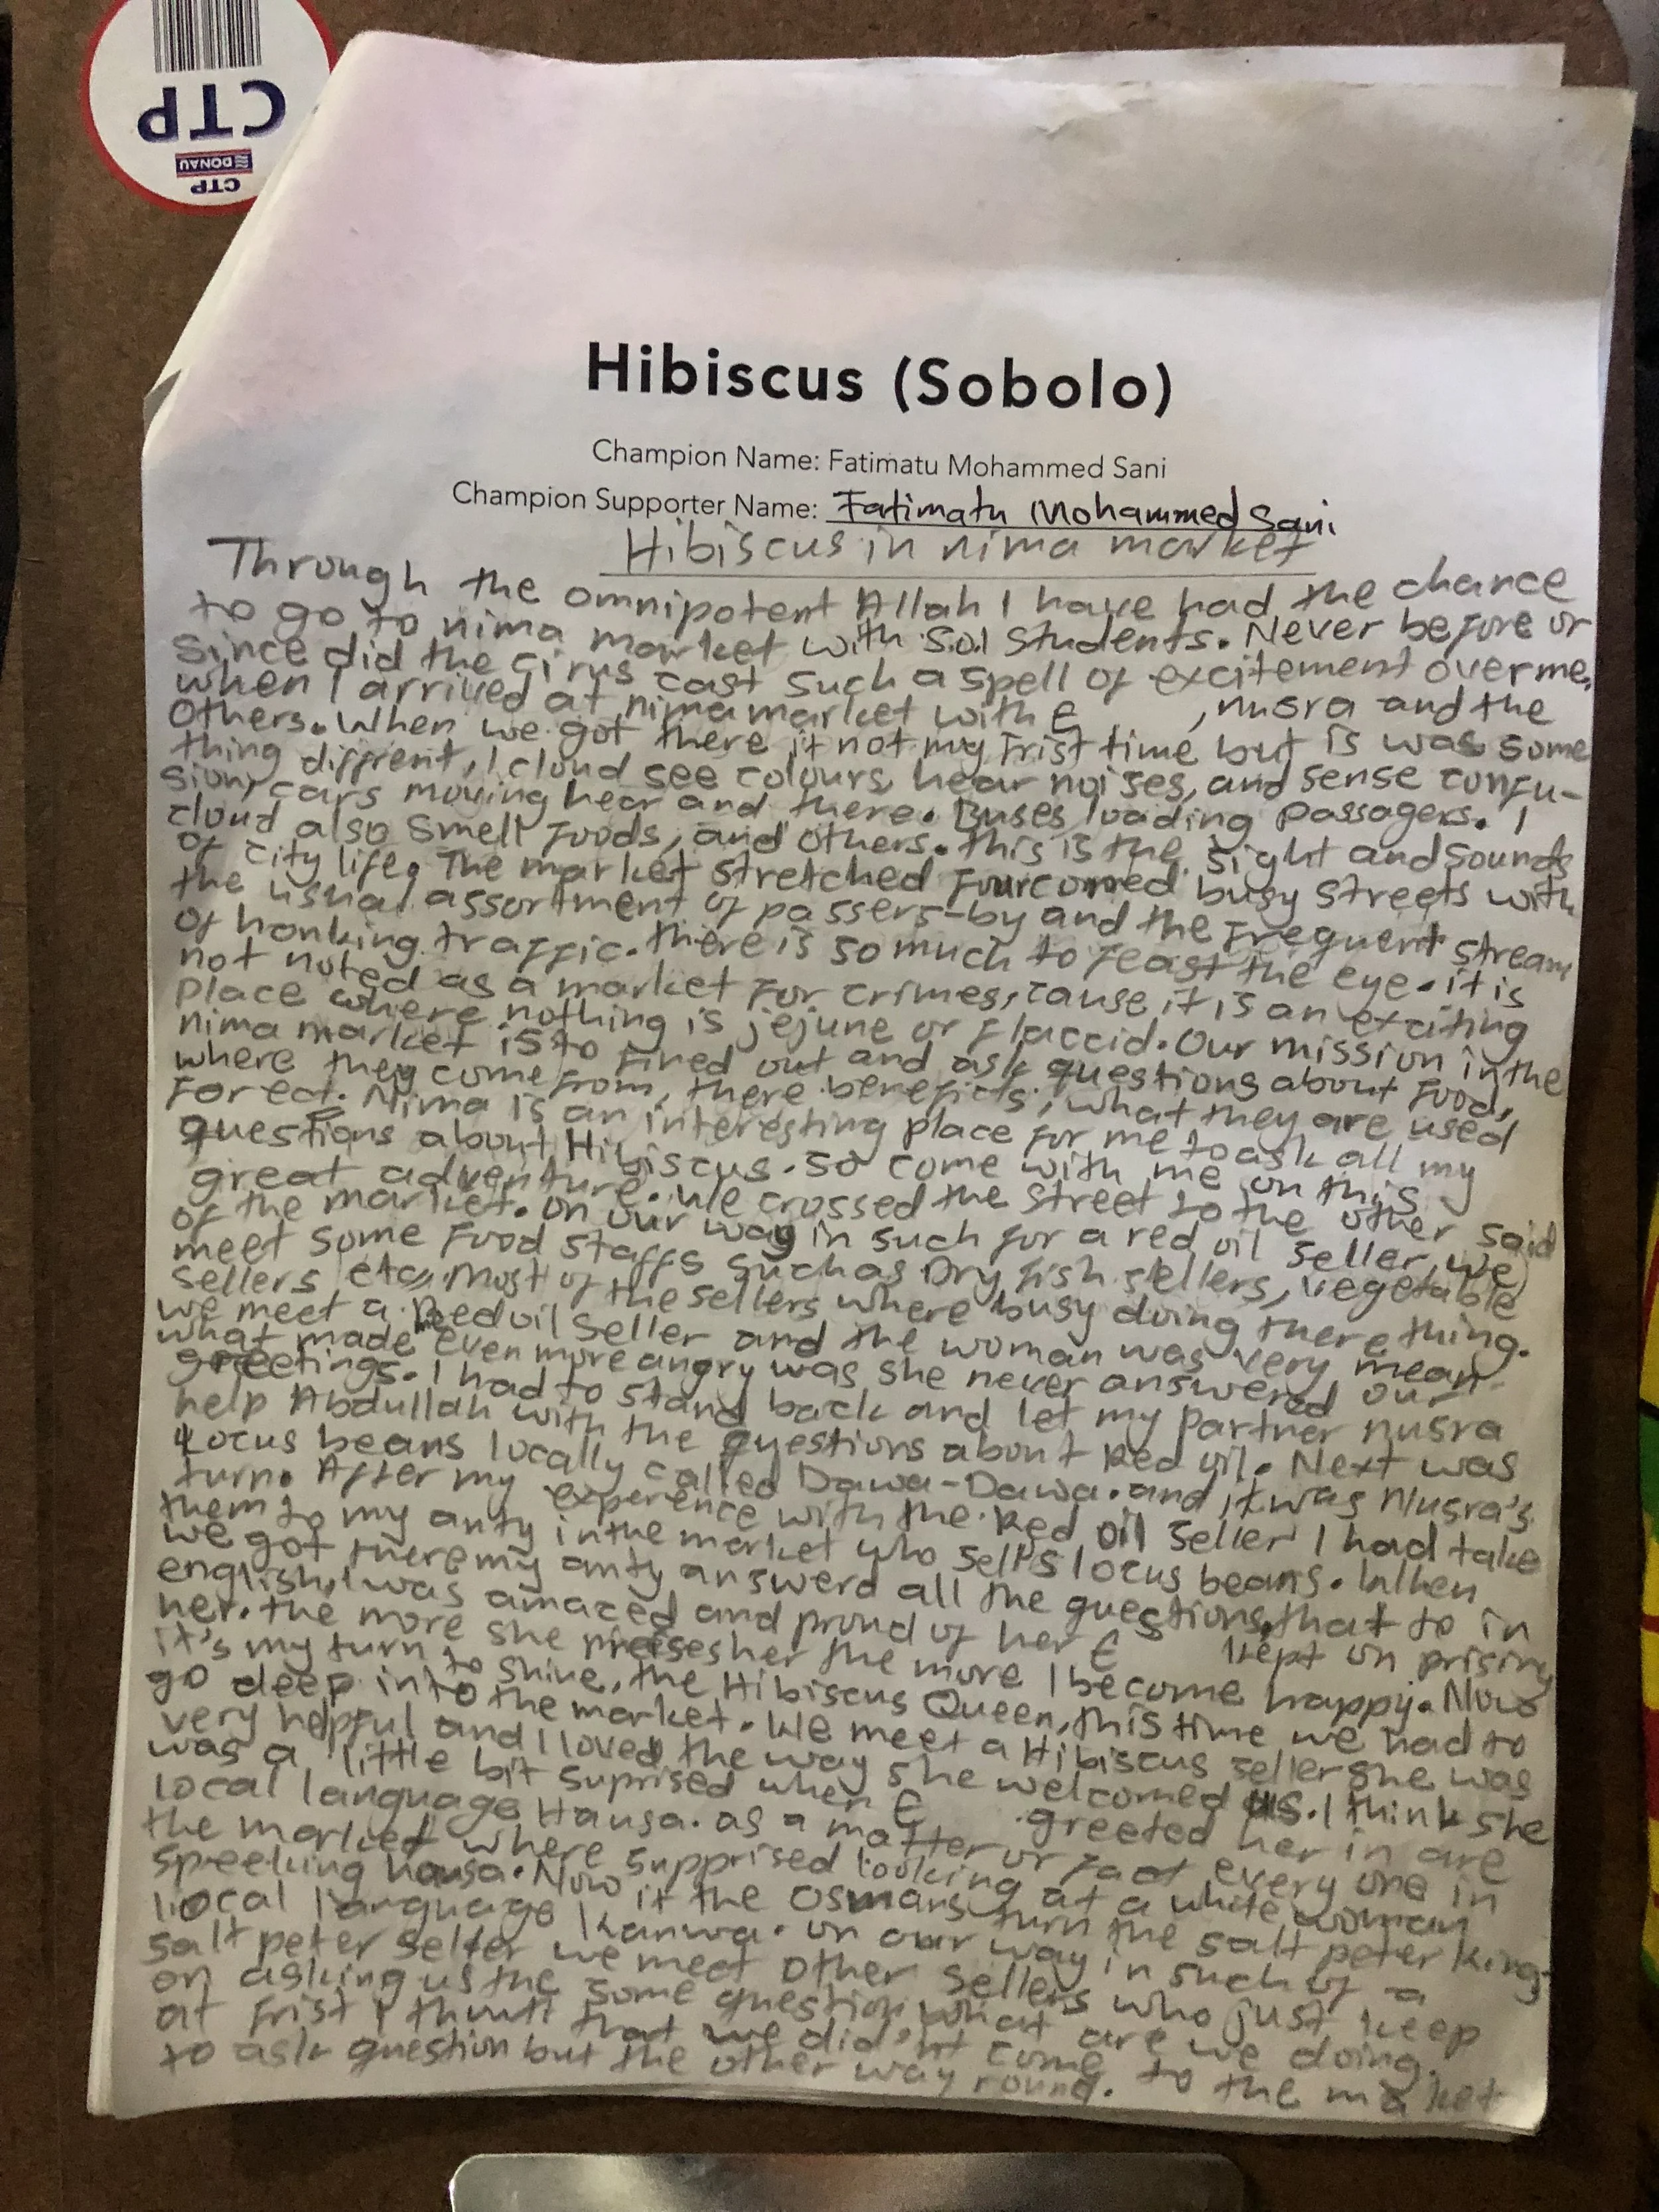 CTP
DONAU
CTP
Hibiscus (Sobolo)
Champion Name: Fatimatu Mohammed Sani
Champion Supporter Name: Fatimatu Mohammed Sani
Hibiscus in nima market
Through the omnipotent Allah I have had the chance
to go to nima market with S.O.I students. Never before or
since did the cirus cast such a spell of excitement over me,
when I arrived at nima market with E , nusra and the
others. When we got there it not my frist time but is was some
thing diffrent, I cloud see colours, hear noises, and sense confu-
sion, cars moving hear and there. Buses loading passagers. I
cloud also smell foods, and others. this is the sight and sounds
of city life. The market stretched four corned busy streets with
the usual assortment of passers-by and the frequent stream
of honking traffic. there is so much to feast the eye. it is
not noted as a market for crimes, cause it is an exciting
place where nothing is jejune or flaccid. Our mission in the
nima market is to fined out and ask questions about food,
where they come from, there benefits, what they are used
for ect. Nima is an interesting place for me to ask all my
questions about Hibiscus. so come with me on this
great adventure. we crossed the street to the other said
of the market. on our way in such for a red oil seller, we
meet some food staffs such as Dry fish sellers, vegetable
sellers etc, most of the sellers where busy doing there thing.
we meet a Reed oil seller and the woman was very mean.
what made me even more angry was she never answered our
greetings. I had to stand back and let my partner nusra
help Abdullah with the questions about Red oil. Next was
Locus beans locally called Dawa-Dawa. and it was Nusra's
turn. After my experence with the Red oil seller I had take
them to my anty in the market who sells locus beans. When
we got there my anty answerd all the questions, that to in
english, I was amazed and proud of her E kept on prising
her. the more she preises her the more I become happy. Now
it's my turn to shine, the Hibiscus Queen, this time we had to
go deep into the market. We meet a Hibiscus seller she was
very helpful and I loved the way she welcomed us. I think she
was a little bit suprised when E greeted her in are
local language Hausa. as a matter of fact every one in
the marked where supprised looking at a white woman
speeking hausa. Now it the Osmans turn the salt peter king.
local language Kanwa. on our way in such of a
salt peter seller we meet other sellers who just keep
on asking us the some question, what are we doing.
at frist I that we did'nt come to the market
to ask question but the other way round.